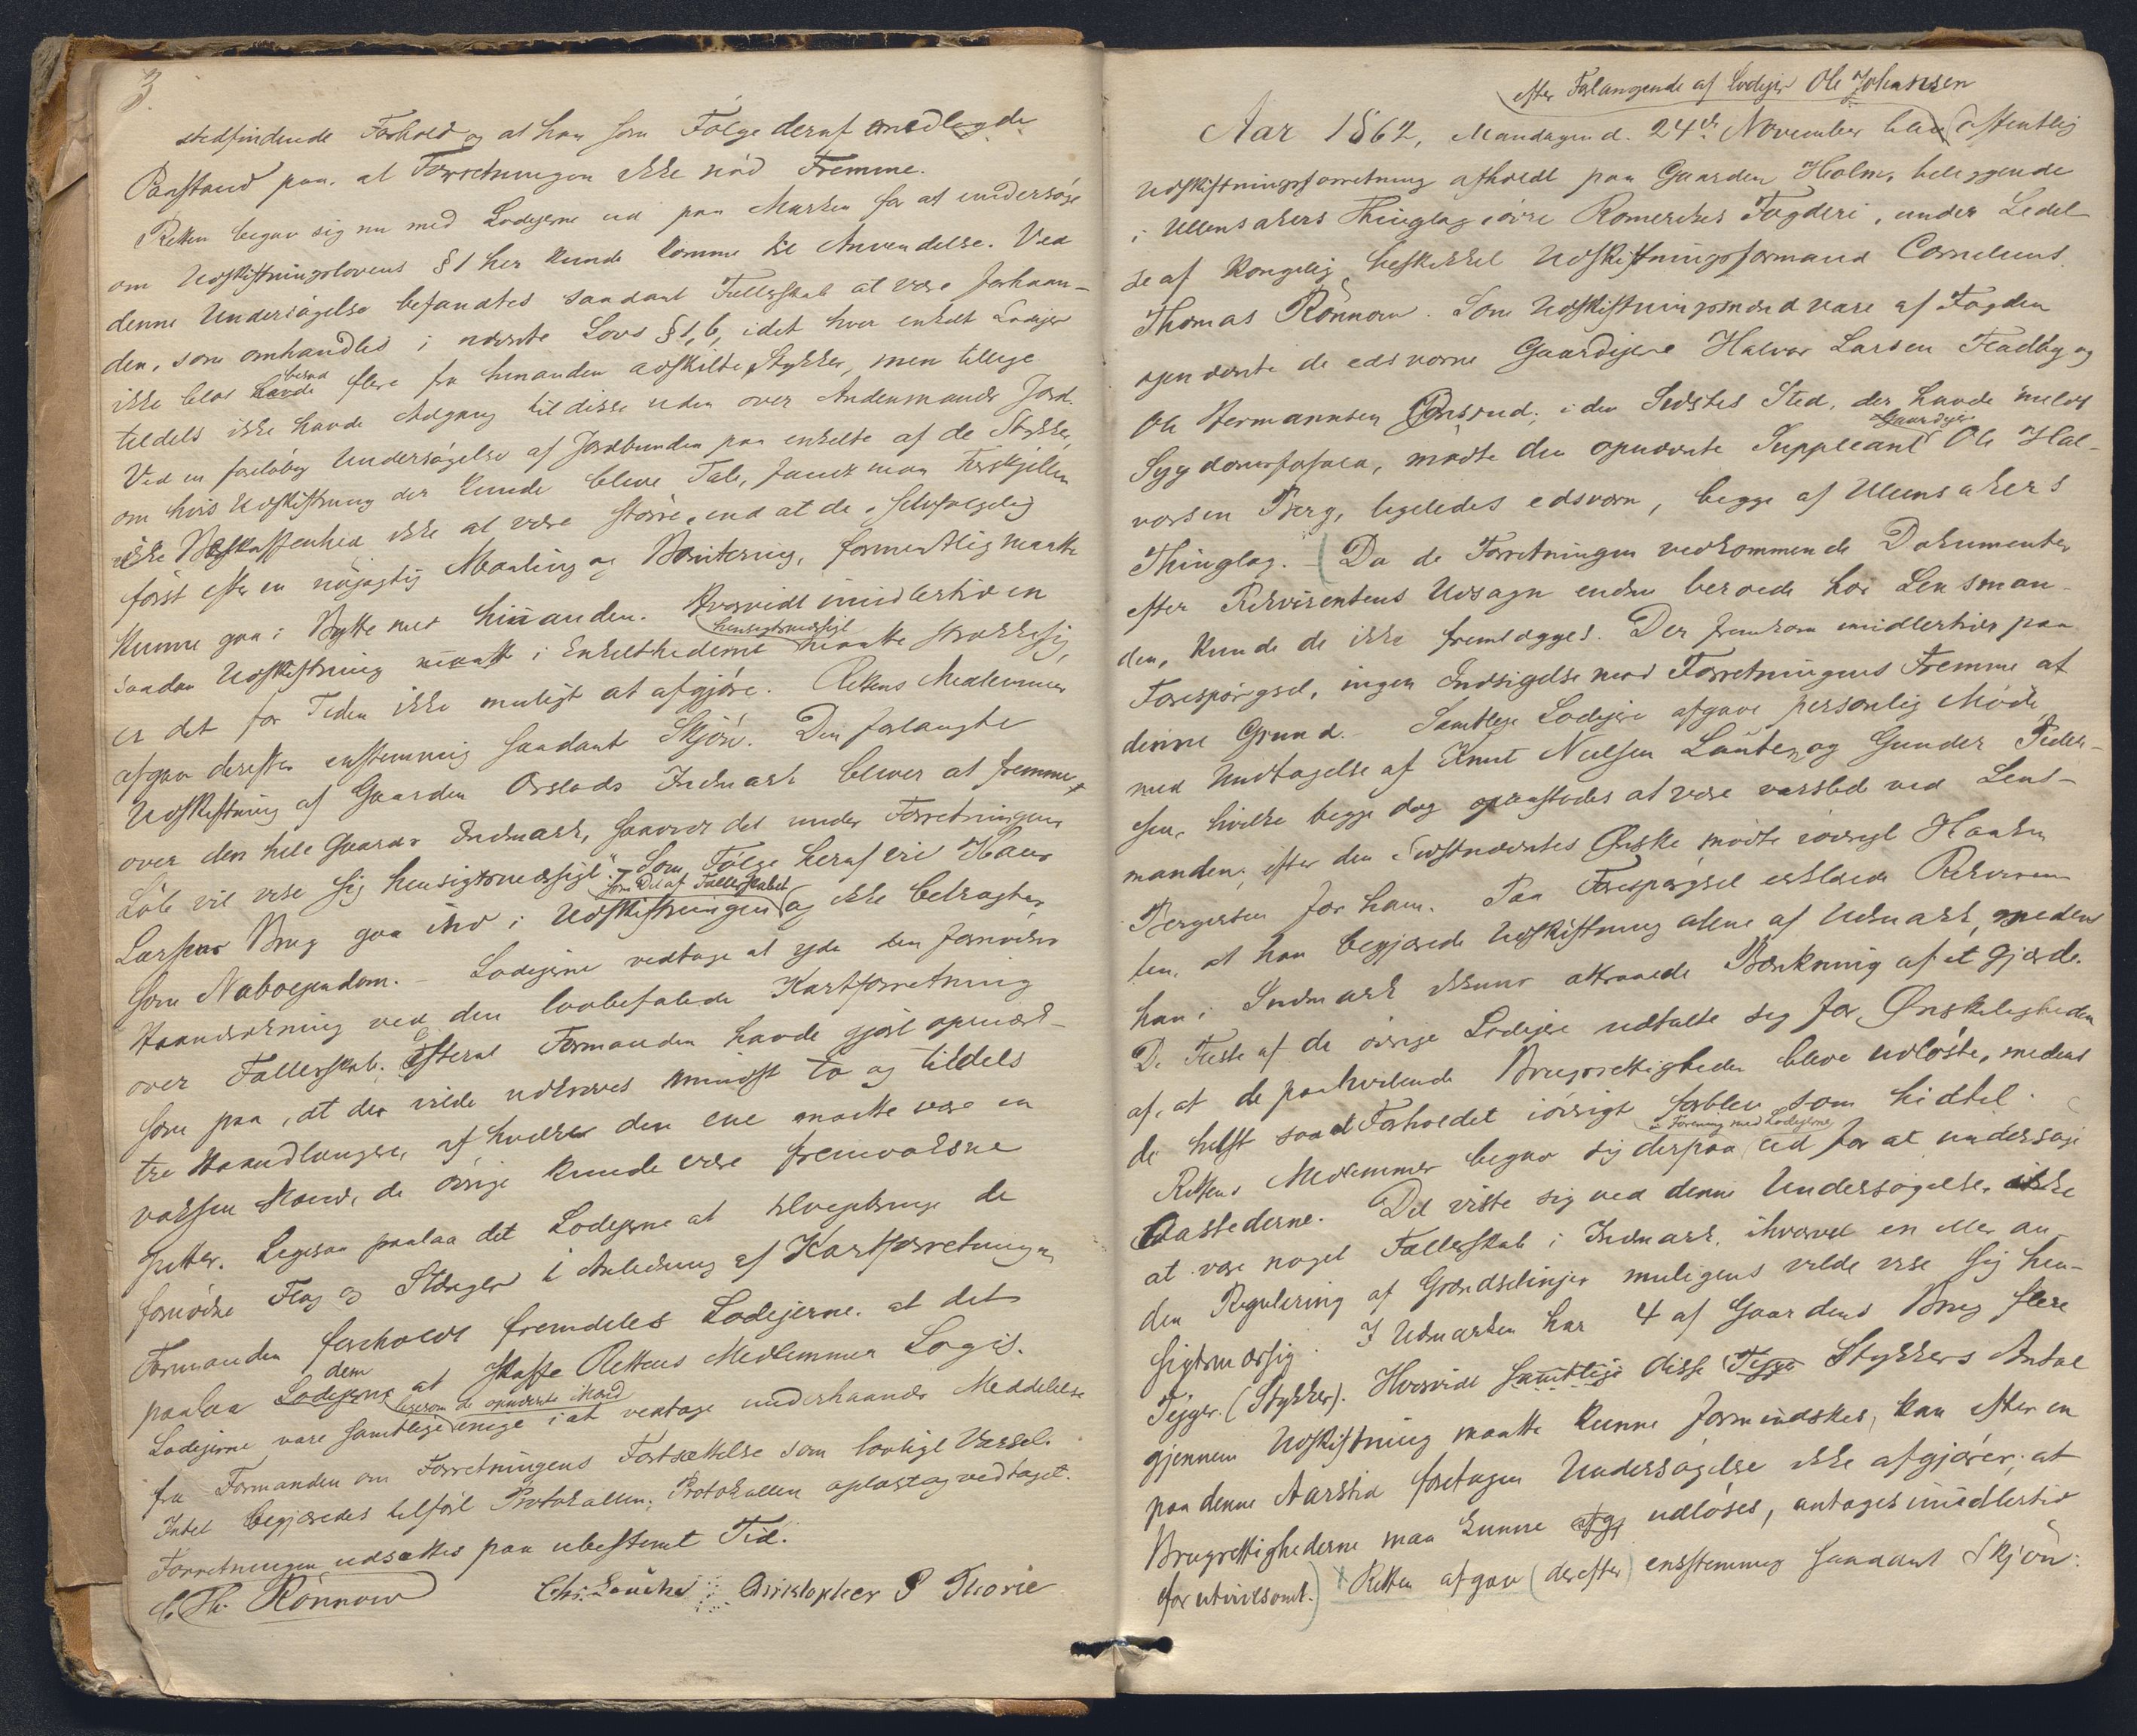 3.
stedfindende Forhold og at han som Følge deraf nedlagde
Paastand paa, at Forretningen ikke nød Fremme.
Retten begav sig nu med Lodejerne ud paa Marken for at undersøge
om Udskiftningslovens § 1 her kunde komme til Anvendelse. Ved
denne Undersøgelse befandtes saadant Fællesskab at være forhaan-
den, som omhandles i nævnte Lovs § 1, b, idet hver enkelt Lodejer
ikke blot havde flere fra hinanden adskilte Stykker, men tillige
tildels ikke havde Adgang til disse uden over Andenmands Jord.
Ved en foreløbig Undersøgelse af Jordbunden paa enkelte af de Stykker,
om hvis Udskiftning der kunde blive Tale, fandt man Forskjellen
Beskaffenhed ikke at være større, end at de, selvfølgelig
først efter en nøjagtig Maaling og Bonitering, formentlig maatte
kunne gaa i Bytte mod hinanden. Hvorvidt imidlertid en
hensigtsmæssigt
saadan Udskiftning i Enkelthederne maatte strække sig,
er det for Tiden ikke muligt at afgjøre. Rettens Medlemmer
afgav derefter enstemmig saadant Skjøn: Den forlangte
Udskiftning af Gaarden Indmark bliver at fremme
over den hele Gaards Indmark, saavidt det under Forretningens
Løb vil vise sig hensigtsmæssigt. Som Følge heraf vil Hans
som Del af Fællesskabet
Brug gaa ind i Udskiftningen og ikke betragtes
som Naboejendom. – Lodejerne vedtage at yde den fornødne
Haandrækning ved den lovbefalede Kartforretning
over Fællesskab. Efterat Formanden havde gjort opmærk-
som paa, at der vilde udkræves mindst to og tildels
tre Haandlangere, af hvilke den ene maatte være en
voksen Mand, de øvrige kunde være fremvoksne
Gutter. Ligesaa paalaa det Lodejerne at tilvejebringe de
fornødne Flag og Stænger i Anledning af Kartforretningen
Formanden foreholdt fremdeles Lodejerne, at det
paalaa dem at skaffe Rettens Medlemmer Logis.
ligesom de opnævnte Mænd
Lodejerne vare samtlige enige i at vedtage underhaands Meddelelse
fra Formanden om Forretningens Fortsættelse som lovligt Varsel.
Intet begjæredes tilført Protokollen; Protokollen oplæst og vedtaget.
Forretningen udsættes paa ubestemt Tid.
C. Th. Rönnow
Christopher P
efter Forlangende af Lodejer Ole Johansen
Aar 1862, Mandagen d. 24de November blev offentlig
Udskiftningsforretning afholdt paa Gaarden Holm, beliggende
i Ullensakers Thinglag i øvre Romerikes Fogderi, under Ledel-
se af Kongelig beskikket Udskiftningsformand Cornelius
Thomas Rönnow. Som Udskiftningsmænd vare af Fogden
opnævnte de edsvorne Gaardejere Halvor Larsen Fladby og
Ole Hermannsen Onsrud; i den Sidstes Sted, der havde meldt
Gaardejer
Sygdomsforfald, mødte den opnævnte Suppleant Ole Hal-
vorsen Berg, ligeledes edsvorn, begge af Ullensakers
Thinglag. – Da de Forretningen vedkommende Dokumenter
efter Rekvirentens Udsagn endnu beroede hos Lensman-
den, kunde de ikke fremlægges. Der fremkom imidlertid paa
Forespørgsel, ingen Indsigelse mod Forretningens Fremme af
denne Grund. Samtlige Lodejere afgave personlig Møde
med Undtagelse af Knut Nielsen og Gunder Peder-
sen, hvilke begge dog opplystes at være varslet ved Lens-
manden; efter den Sidstnævntes Ønske mødte iøvrigt Haaken
Bergersen for ham. Paa Forespørgsel erklærede Rekviren-
ten, at han begjærede Udskiftning alene af Udmark, medens
han i Indmark ikkun attraaede Rænkning af et Gjærde.
De Fleste af de øvrige Lodejere udtalte sig for Ønskeligheden
af, at de paahvilende Brugsrettigheder bleve udløste, medens
de helst saa at Forholdet iøvrigt forblev som hidtil.
i Forening med Lodejerne
Rettens Medlemmer begav sig derpaa ud for at undersøge
Aastederne. Det viste sig ved denne Undersøgelse ikke
at være noget Fællesskab i Indmark, ihvorvel en eller an-
den Regulering af Grændselinjer muligens vilde vise sig hen-
sigtsmæssig. I Udmarken har 4 af Gaardens Brug flere
Tejger (Stykker). Hvorvidt samtlige disse Stykkers Antal
gjennem Udskiftning maatte kunne formindskes, kan efter en
paa denne Aarstid foretagen Undersøgelse ikke afgjøres; at
Brugsrettighederne maa kunne udløses, antages imidlertid
for utvivlsomt.) x Retten afgav (derefter) enstemmig saadant Skjøn: